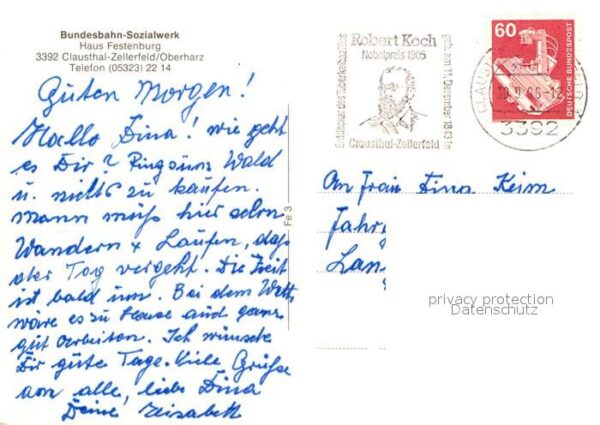 Bundesbahn-Sozialwerk
Haus Festenburg
3392 Clausthal-Zellerfeld/Oberharz
Telefon (05323) 22 14
Guten Morgen!
Hallo Dina! wie geht
es Dir? Ringsum Wald
u. nichts zu kaufen.
Mann muß hier schon
Wandern + Laufen, daß
der Tag vergeht. Die Zeit
ist bald um. Bei dem Wett.
wäre es zu Hause auch ganz
gut Arbeiten. Ich wünsche
Dir gute Tage. Viele Grüße
an alle, liebe Dina
Deine Elisabeth
Fe 3
Entdecker des Tuberkelbazillus
Robert Koch
Nobelpreis 1905
geb. am 11. Dezember 1843 in
Clausthal-Zellerfeld
CLAUSTHAL
3392
60
DEUTSCHE BUNDESPOST
An Frau Dina Keim
Fahr
Lan
privacy protection
Datenschutz